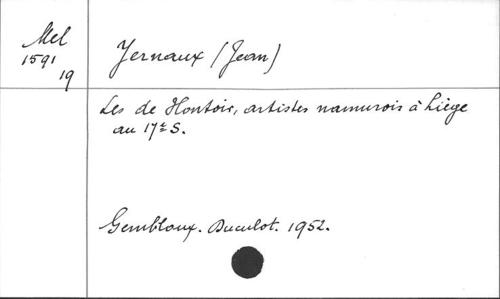 Mel
1591
19
Yernaux (Jean)
Les de Hontoir, artistes namurois à Liège
au 17e S.
Gembloux. Duculot. 1952.